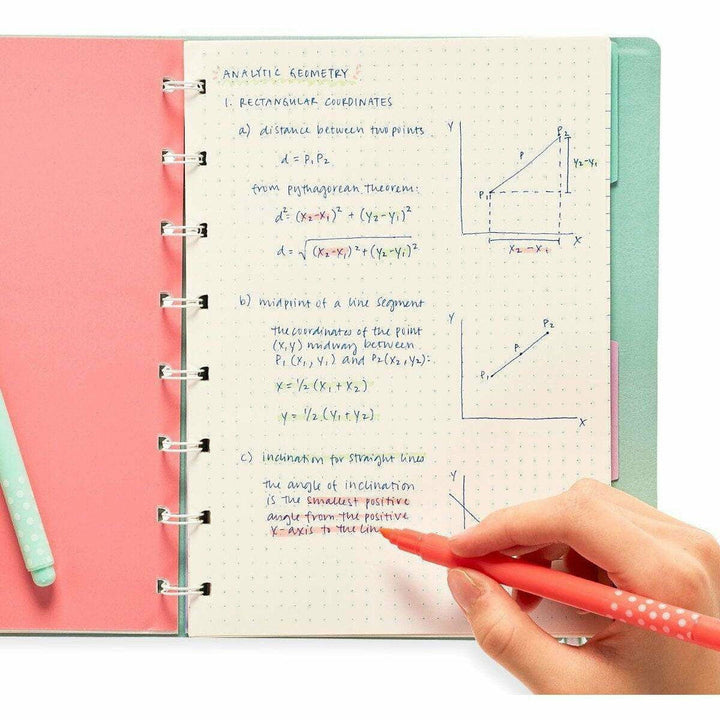 ANALYTIC GEOMETRY
1. RECTANGULAR COORDINATES
a) distance between two points
d = P₁P₂
from pythagorean theorem:
d² = (x₂-x₁)² + (y₂-y₁)²
d = √(x₂-x₁)² + (y₂-y₁)²
Y
P₂
P
P₁
y₂-y₁
X
x₂ - x₁
b) midpoint of a line segment
the coordinates of the point
(x,y) midway between
P₁ (x₁, y₁) and P₂(x₂, y₂):
x = 1/2 (x₁ + x₂)
y = 1/2 (y₁ + y₂)
Y
P₂
P
P₁
X
c) inclination for straight lines
the angle of inclination
is the smallest positive
angle from the positive
x-axis to the line
Y